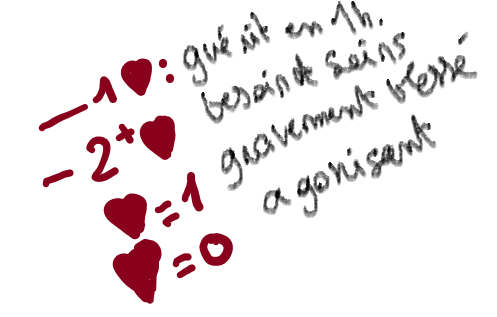 — 1 ♥ : guérit en 1h.
- 2+ ♥ besoin de soins
♥ = 1 gravement blessé
♥ = 0 agonisant